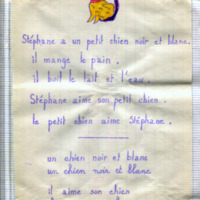 Stéphane a un petit chien noir et blanc.
il mange le pain.
il boit le lait et l'eau.
Stéphane aime son petit chien.
le petit chien aime Stéphane.
un chien noir et blanc
un chien noir et blanc
il aime son chien